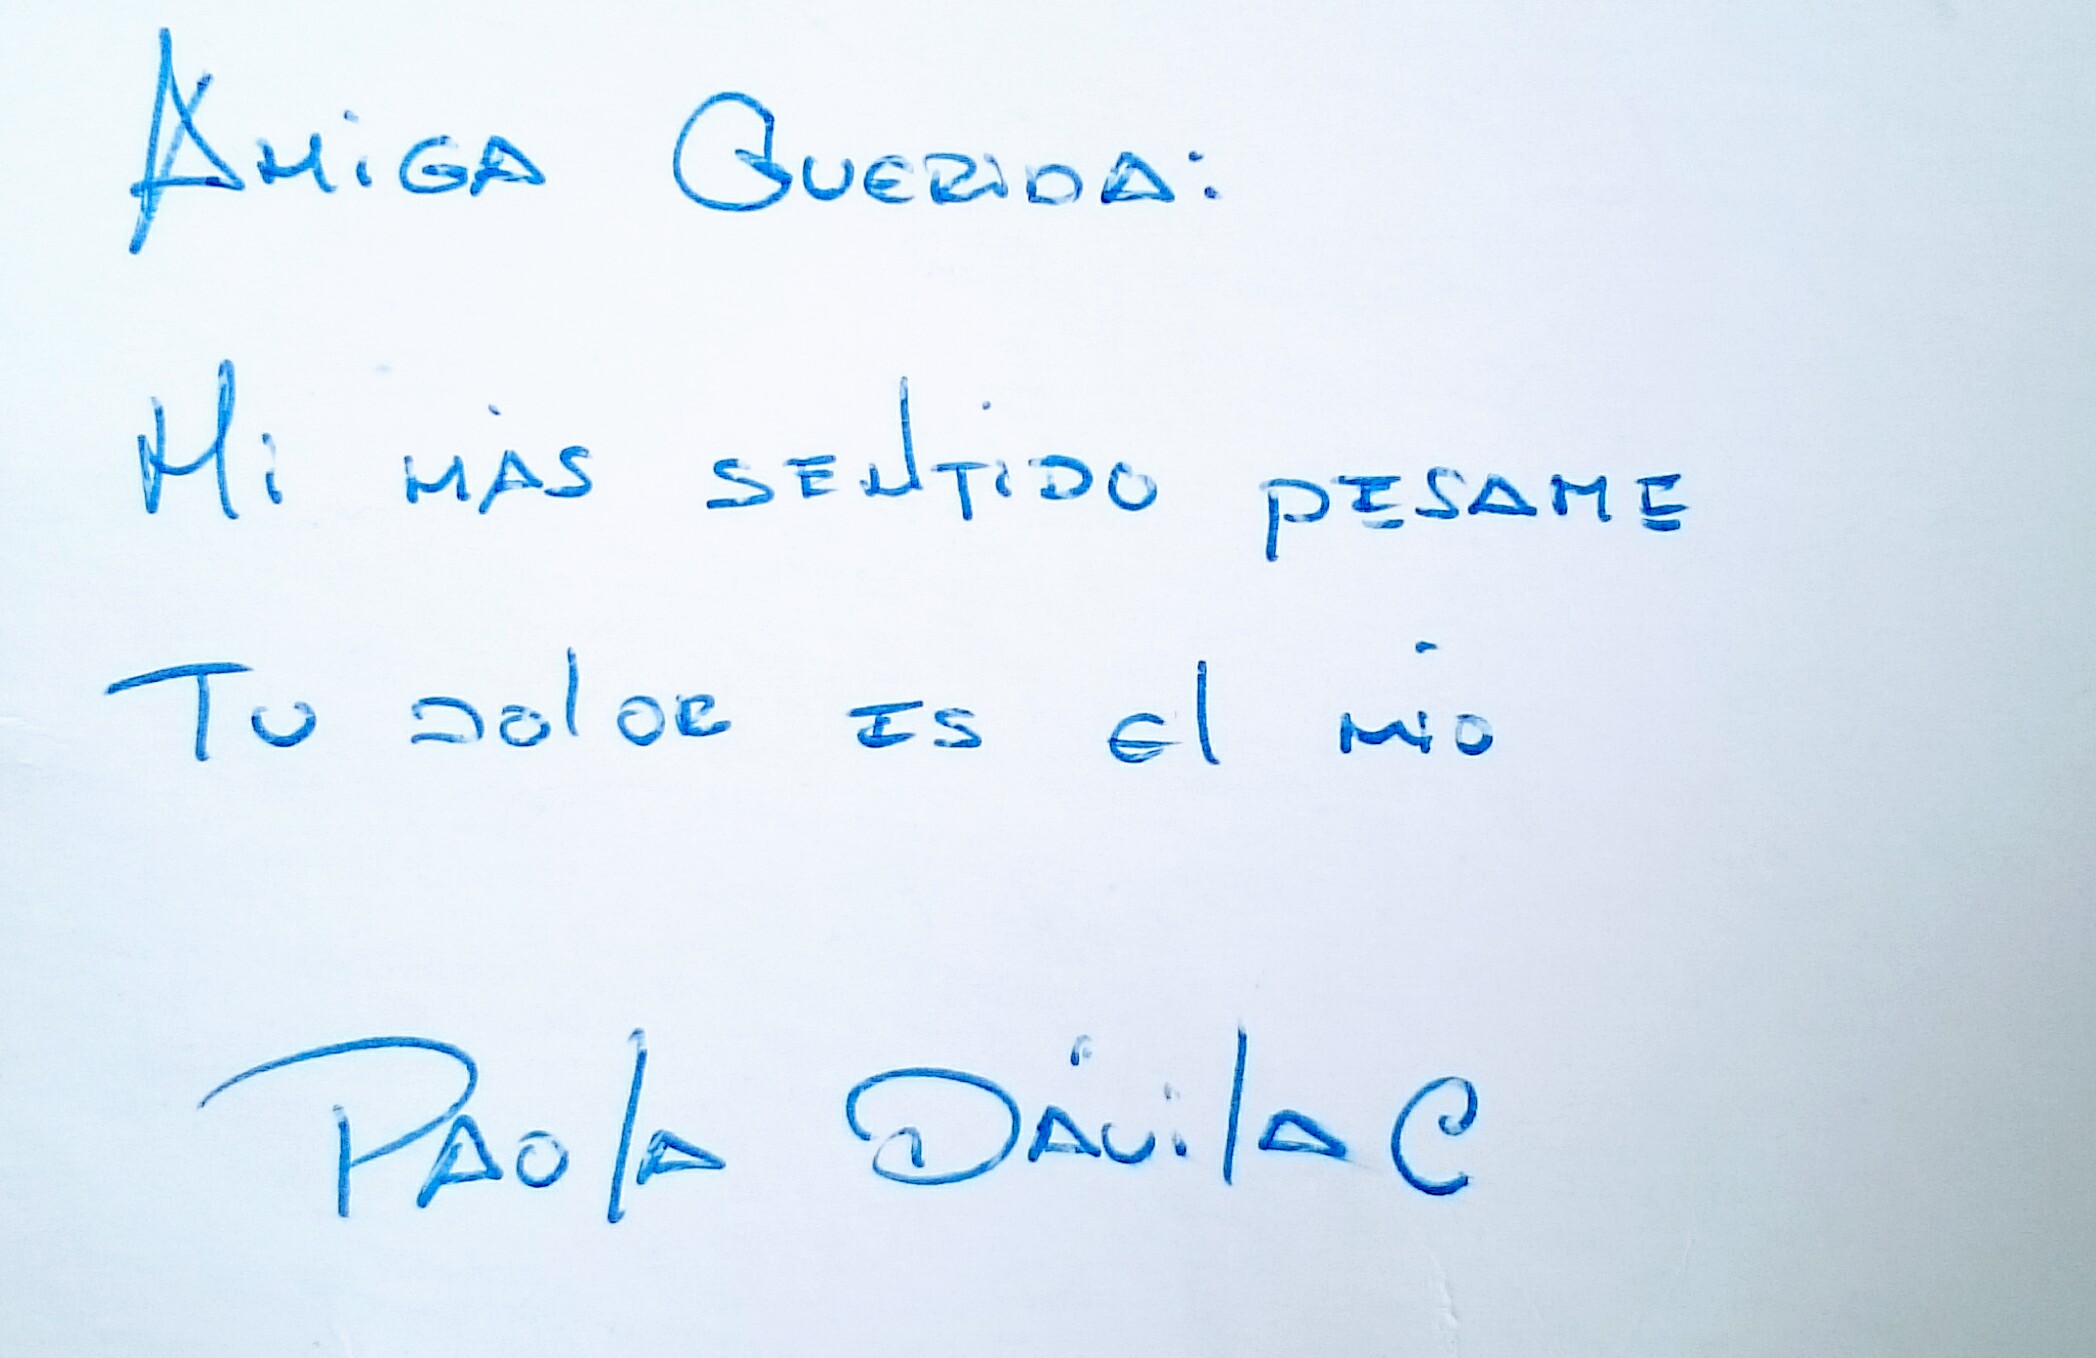 AMiGA QUERiDA:
Mi MÁS SENTiDO PESAME
TU DOlOR ES El MíO
PAOlA DÁVilA C